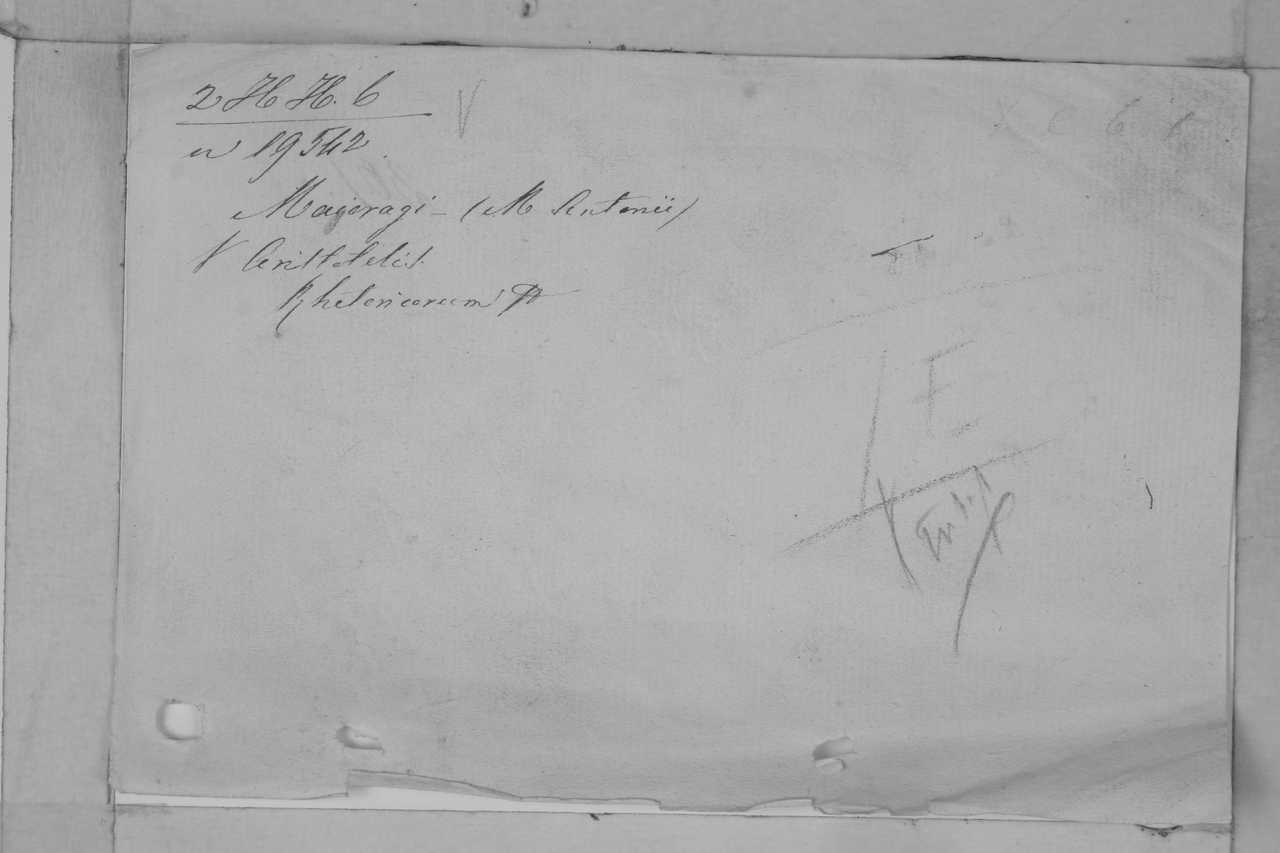 2 H H. 6 V
n 19542.
Majoragi - (M Antonii)
V Aristotelis.
Rhetoricorum
E